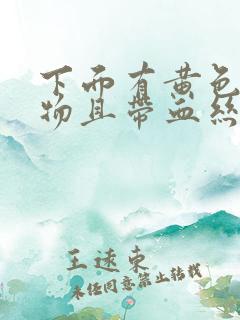 下而有黄色
物且带血丝
王逮东
未经同意禁止转载